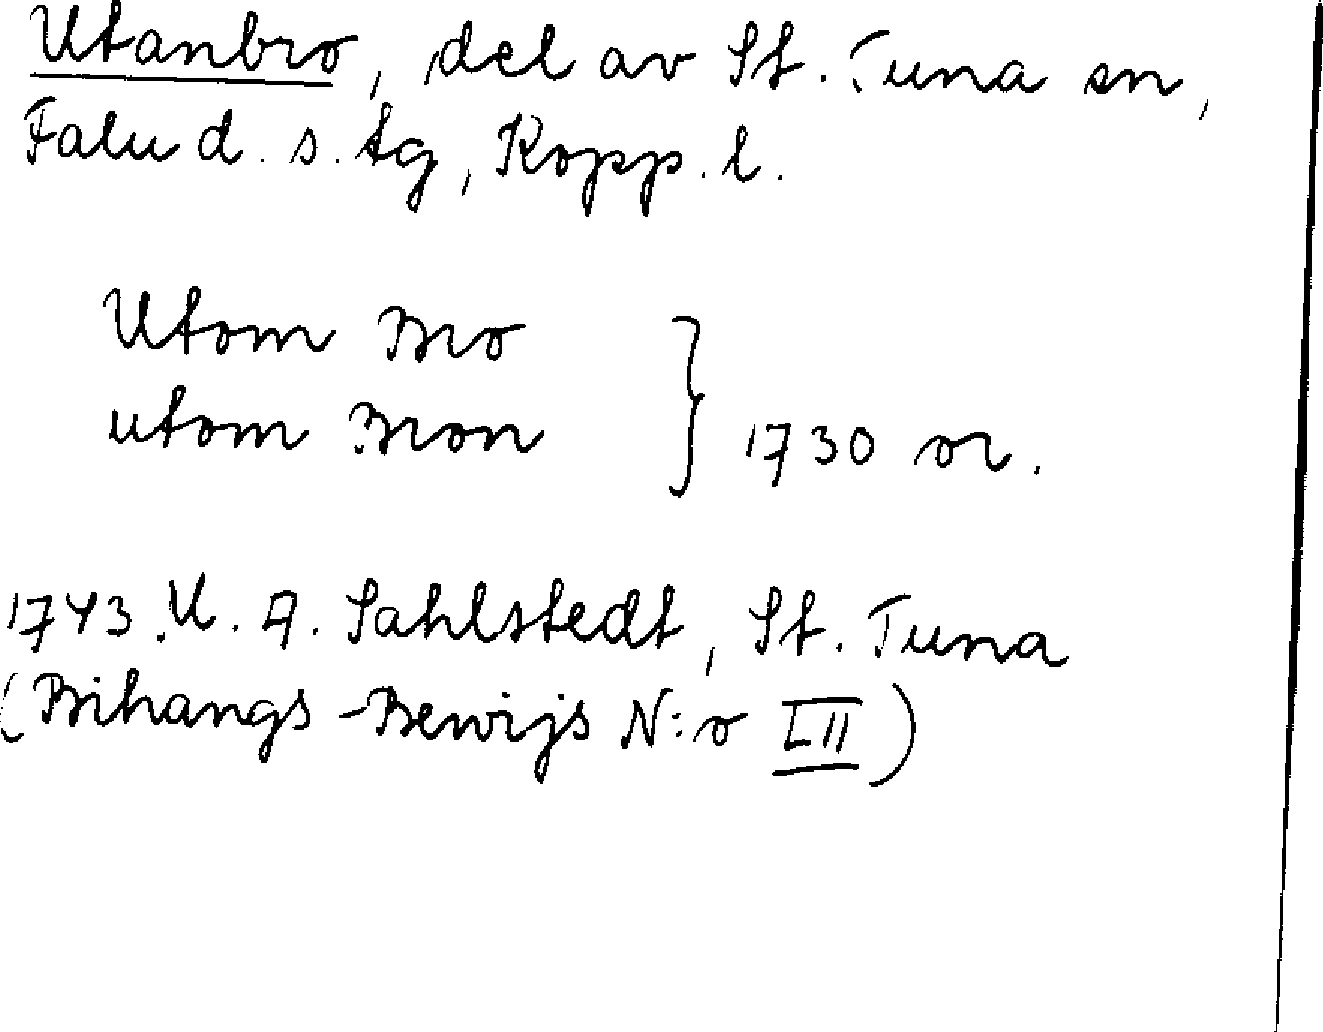 Utanbro, del av St. Tuna sn,
Falu d. s. tg, Kopp. l.
Utom Bro
utom Bron } 1730 or.
1743. U. A. Sahlstedt, St. Tuna
(Bihangs-Bewijs N:o LII)